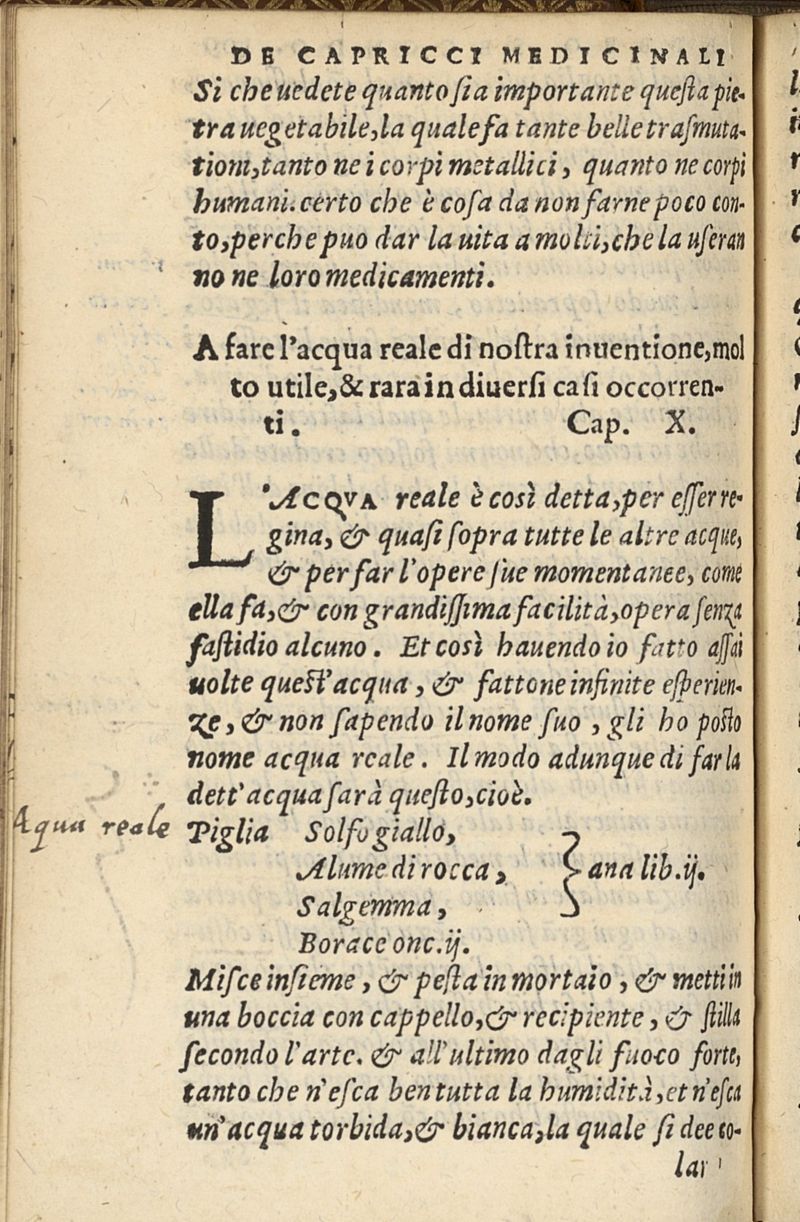 DE CAPRICCI MEDICINALI
Si che uedete quanto ſia importante queſta pie-
tra uegetabile, la quale fa tante belle traſmuta-
tioni, tanto ne i corpi metallici, quanto ne corpi
humani. certo che è coſa da non farne poco con-
to, perche puo dar la uita a molti, che la uſeran
no ne loro medicamenti.
A fare l'acqua reale di noſtra inuentione, mol
to utile, & rara in diuerſi caſi occorren-
ti. Cap. X.
L'ACQVA reale è così detta, per eſſer re-
gina, & quaſi ſopra tutte le altre acque,
& per far l'opere ſue momentanee, come
ella fa, & con grandiſſima facilità, opera ſenza
faſtidio alcuno. Et così hauendo io fatto aſſai
uolte queſt'acqua, & fattone infinite eſperien-
ze, & non ſapendo il nome ſuo, gli ho poſto
nome acqua reale. Il modo adunque di far la
dett'acqua ſarà queſto, cioè.
Aqua reale
Piglia Solfo giallo,
Alume di rocca, } ana lib.ij.
Salgemma,
Borace onc.ij.
Miſce inſieme, & peſta in mortaio, & metti in
una boccia con cappello, & recipiente, & ſtilla
ſecondo l'arte. & all'ultimo dagli fuoco forte,
tanto che n'eſca ben tutta la humidità, et n'eſca
un'acqua torbida, & bianca, la quale ſi dee co-
lar